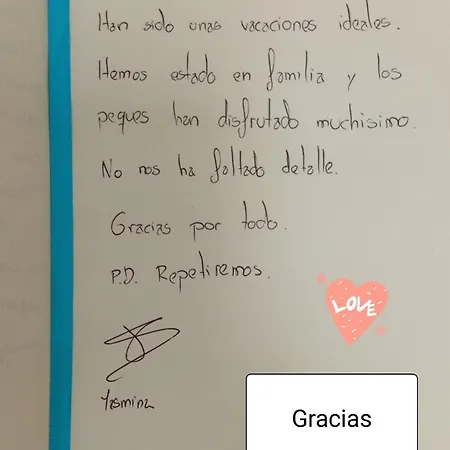 Han sido unas vacaciones ideales.
Hemos estado en familia y los
peques han disfrutado muchisimo.
No nos ha faltado detalle.
Gracias por todo.
P.D. Repetiremos.
LOVE
Yasmina
Gracias